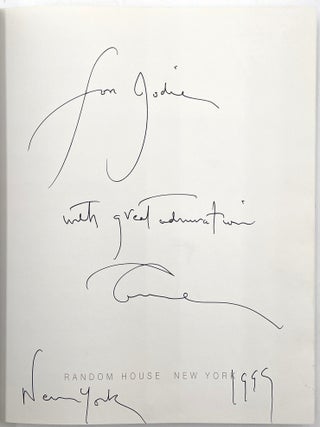 for Jodie
with great admiration
RANDOM HOUSE NEW YORK
New York 1999